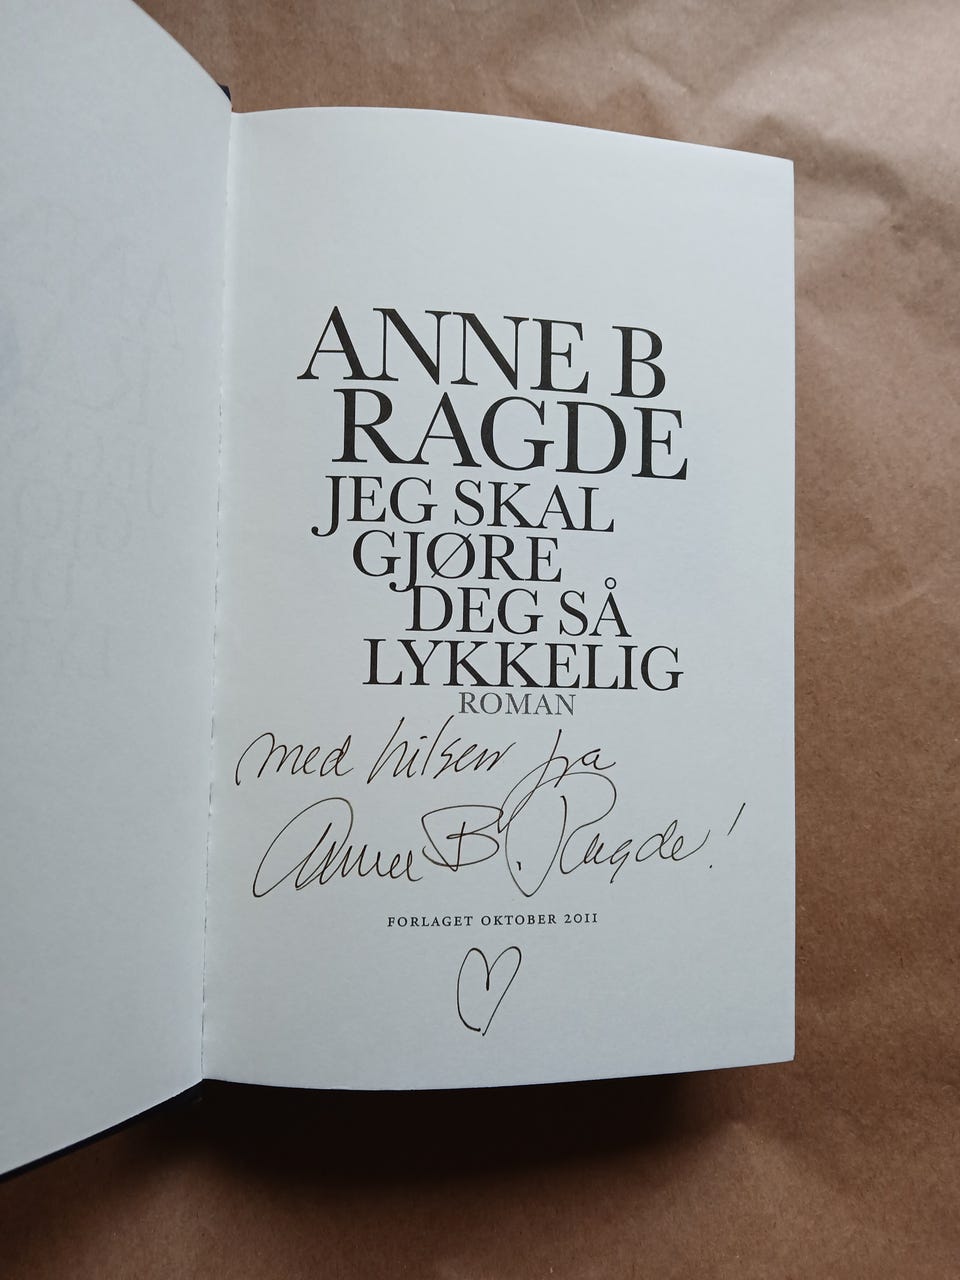 ANNE B
RAGDE
JEG SKAL
GJØRE
DEG SÅ
LYKKELIG
ROMAN
med hilsen fra
Anne B. Ragde!
FORLAGET OKTOBER 2011